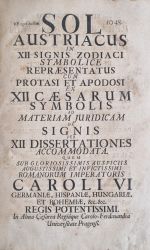 SOL
AUSTRIACUS
IN
XII SIGNIS ZODIACI
SYMBOLICE
REPRÆSENTATUS
CUM
PROTASI ET APODOSI
ET
XII CÆSARUM
SYMBOLIS
MATERIAM JURIDICAM
SIGNIS
XII DISSERTATIONES
ACCOMMODATA
QUEM
SUB GLORIOSISSIMIS AUSPICIIS
AUGUSTISSIMI ET INVICTISSIMI
ROMANORUM IMPERATORIS
CAROLI VI
GERMANIÆ, HISPANIÆ, HUNGARIÆ,
ET BOHEMIÆ, &c. &c.
REGIS POTENTISSIMI.
In Alma Cæsarea Regiaque Carolo-Ferdinandea
Universitate Pragensi